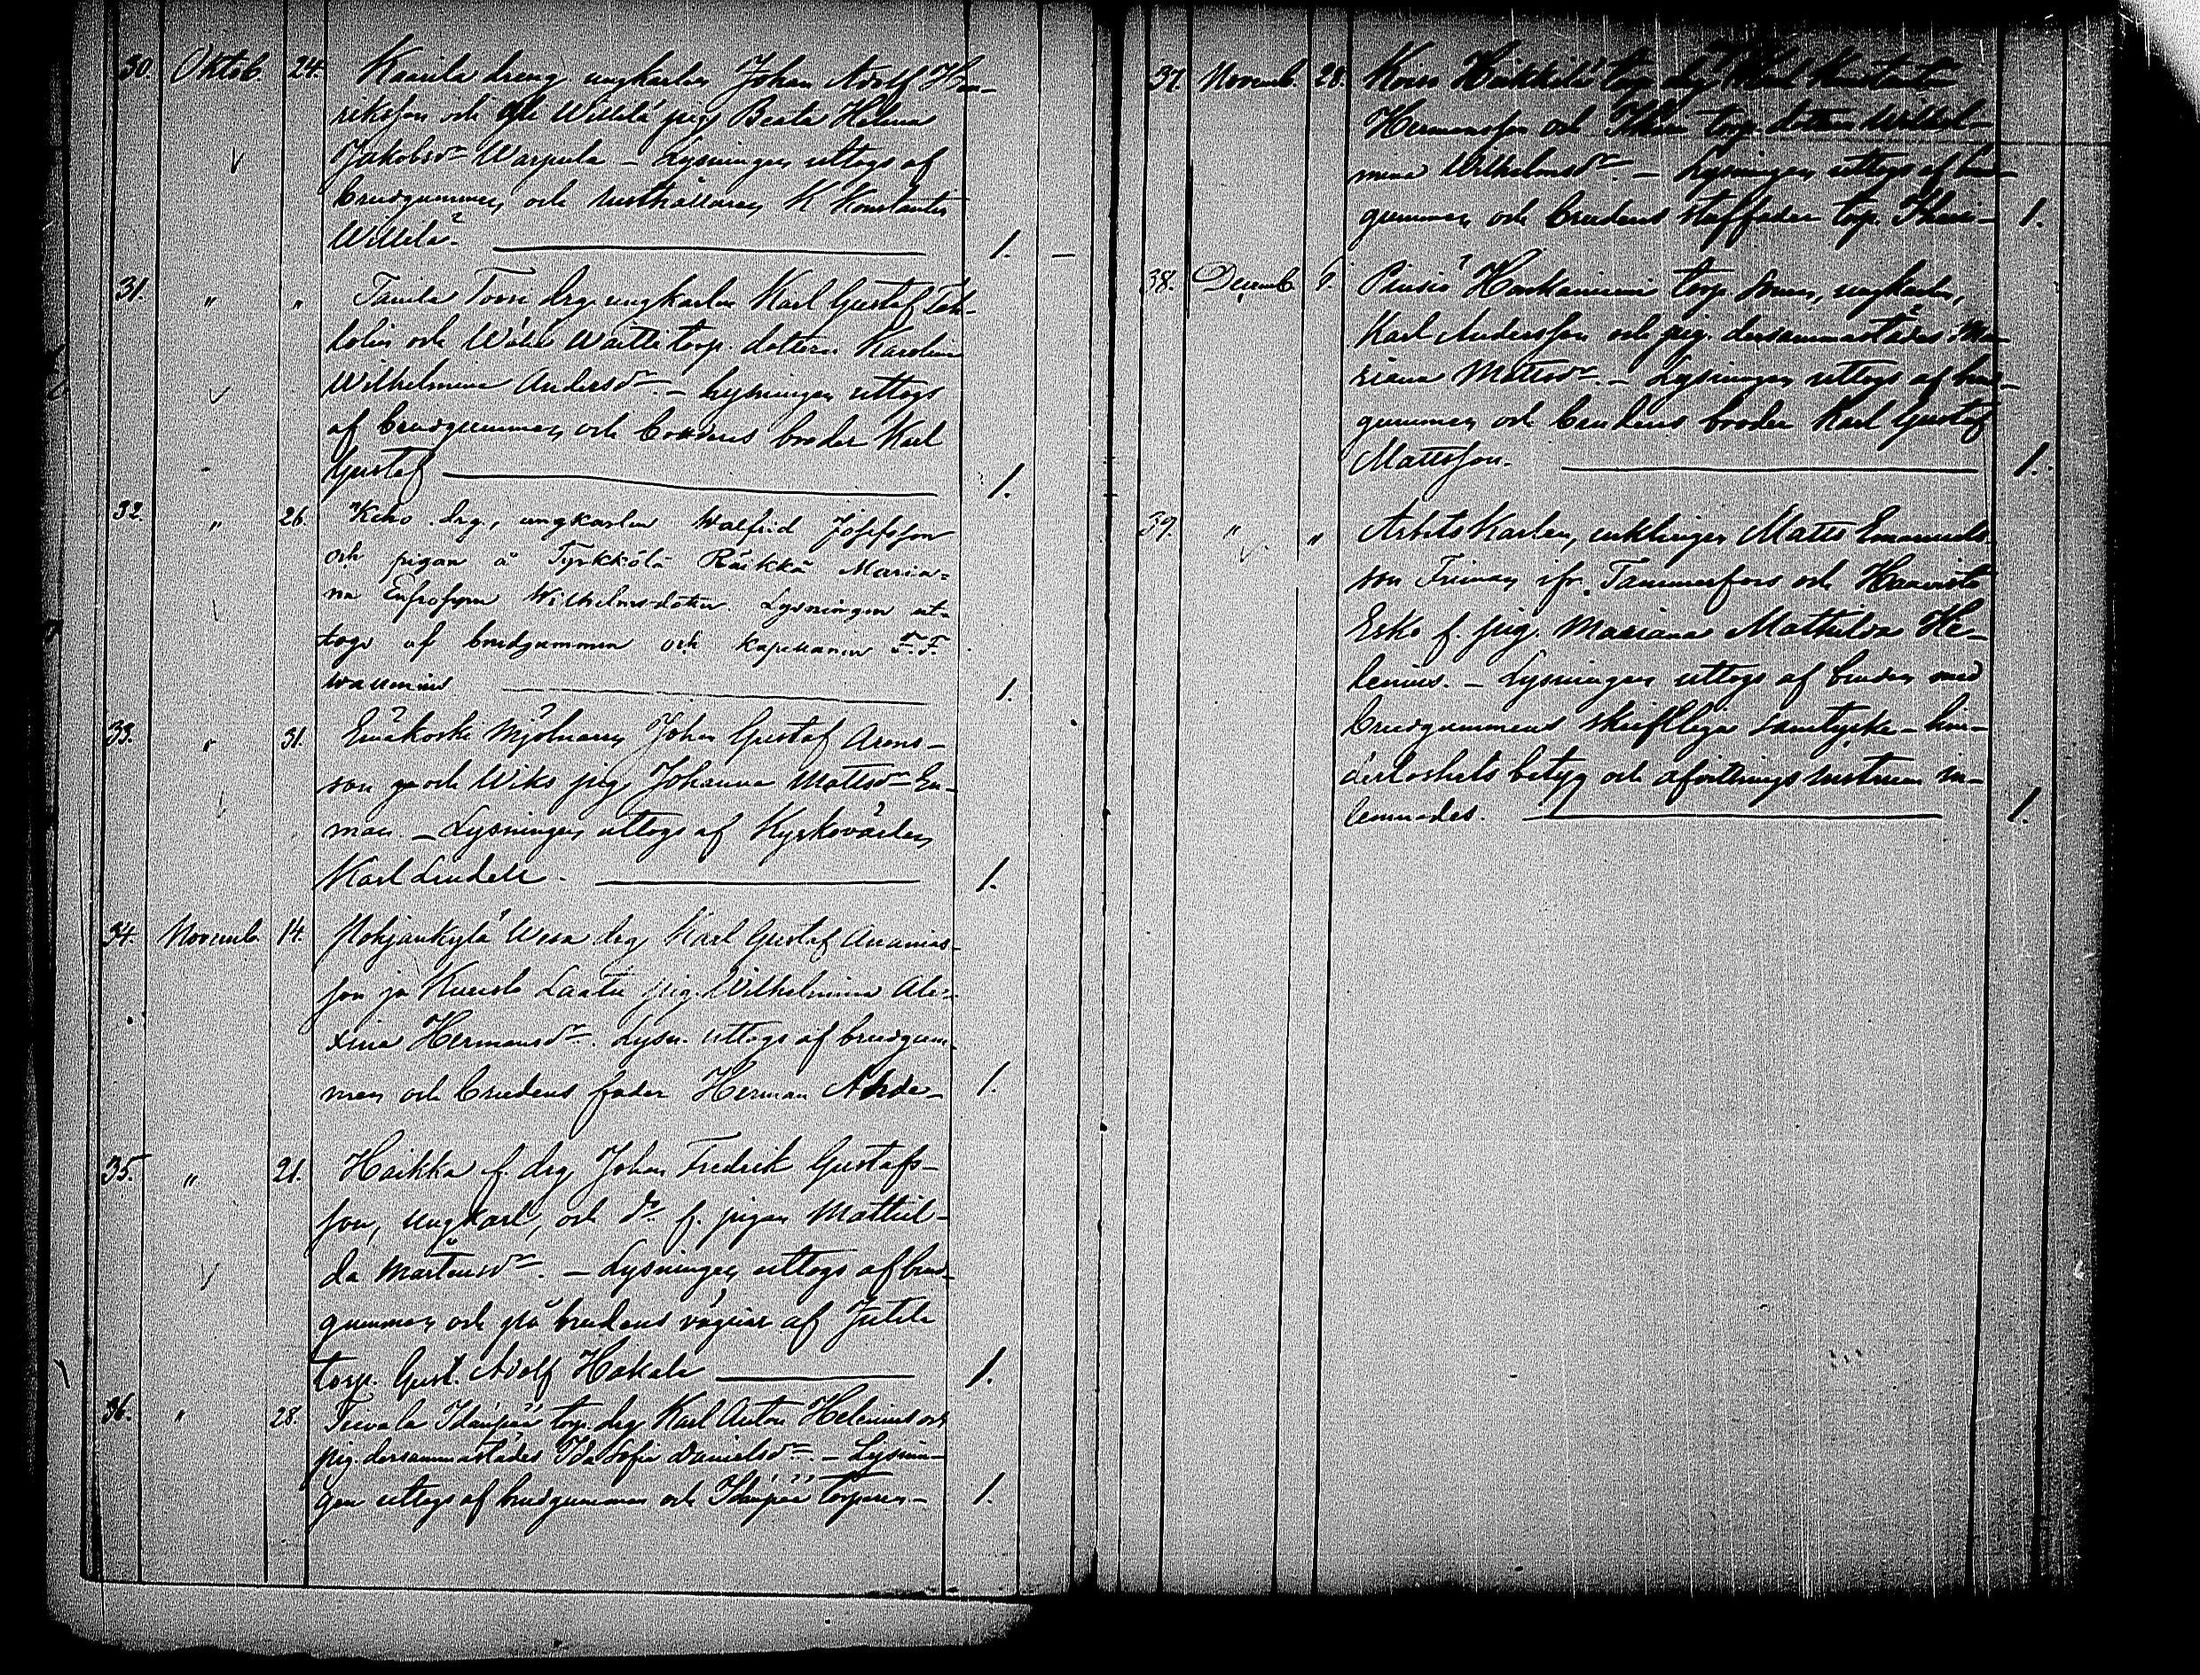 30. Oktob. 24. Kaanila dreng ungkarlen Johan Adolf Hen-
riksson och Willilä pig. Beata Helena
Jakobsdr Warpula – Lysningen uttogs af
brudgummen och rusthållaren K Konstantin
Willilä. 1. –
31. " " Tanila Tossi drg. ungkarlen Karl Gustaf
och Waitti torp. dottern Karolina
Wilhelmina Andersdr. – Lysningen uttogs
af brudgummen och brudens broder Karl
Gustaf 1.
32. " 26. Keho drg., ungkarlen Walfrid Josefsson
och pigan å Tyrkkölä Räikkä Maria-
na Eufrosyna Wilhelmsdotter. Lysningen ut-
togs af brudgummen och kapellanen F. F.
Wallenius 1.
33. " 31. mjölnaren Johan Gustaf Arons-
son och Wiks pig. Johanna Mattsdr En-
man. – Lysningen uttogs af Kyrkovärden
Karl Lindell. 1.
34. Novemb. 14. Pohjankylä Wesa drg Karl Gustaf Ananias-
son ja Laata pig. Wilhelmina Ale-
xina Hermansdr. Lysn. uttogs af brudgum-
men och brudens fader Herman Ahde – 1.
35. " 21. Haikka f. drg Johan Fredrik Gustafs-
son, ungkarl, och dr f. pigan Mathil-
da Mårtensdr. – Lysningen uttogs af brud-
gummen och på brudens vägnar af Jutila
torp. Gust. Adolf Hakala 1.
36. " 28. Tevala Idänpää torp. drg Karl Anton Helenius och
pig. dersammastädes Ida Sofia Danielsdr. – Lysnin-
gen uttogs af brudgummen och Idänpää torparen – 1.
37. Novemb. 28. Heikkilä torp. drg Karl Konstantin
Hermansson och torp. dottern Wilhel-
mina Wilhelmsdr. – Lysningen uttogs af brud-
gummen och brudens stuffader torp. – 1.
38. Decemb. 9. Pinsiö torp. sonen, ungkarlen,
Karl Andersson och pig. dersammastädes Ma-
riana Mattsdr. – Lysningen uttogs af brud-
gummen och brudens broder Karl Gustaf
Mattsson. 1.
39. " " Arbetskarlen, enklingen Matts Emanuels-
son Friman ifr. Tammerfors och Haavisto
Esko f. pig. Mariana Mathilda He-
lenius. – Lysningen uttogs af bruden med
brudgummens skriftliga samtycke – hin-
derloshets betyg och afvittrings instrum. in-
lemnades. 1.